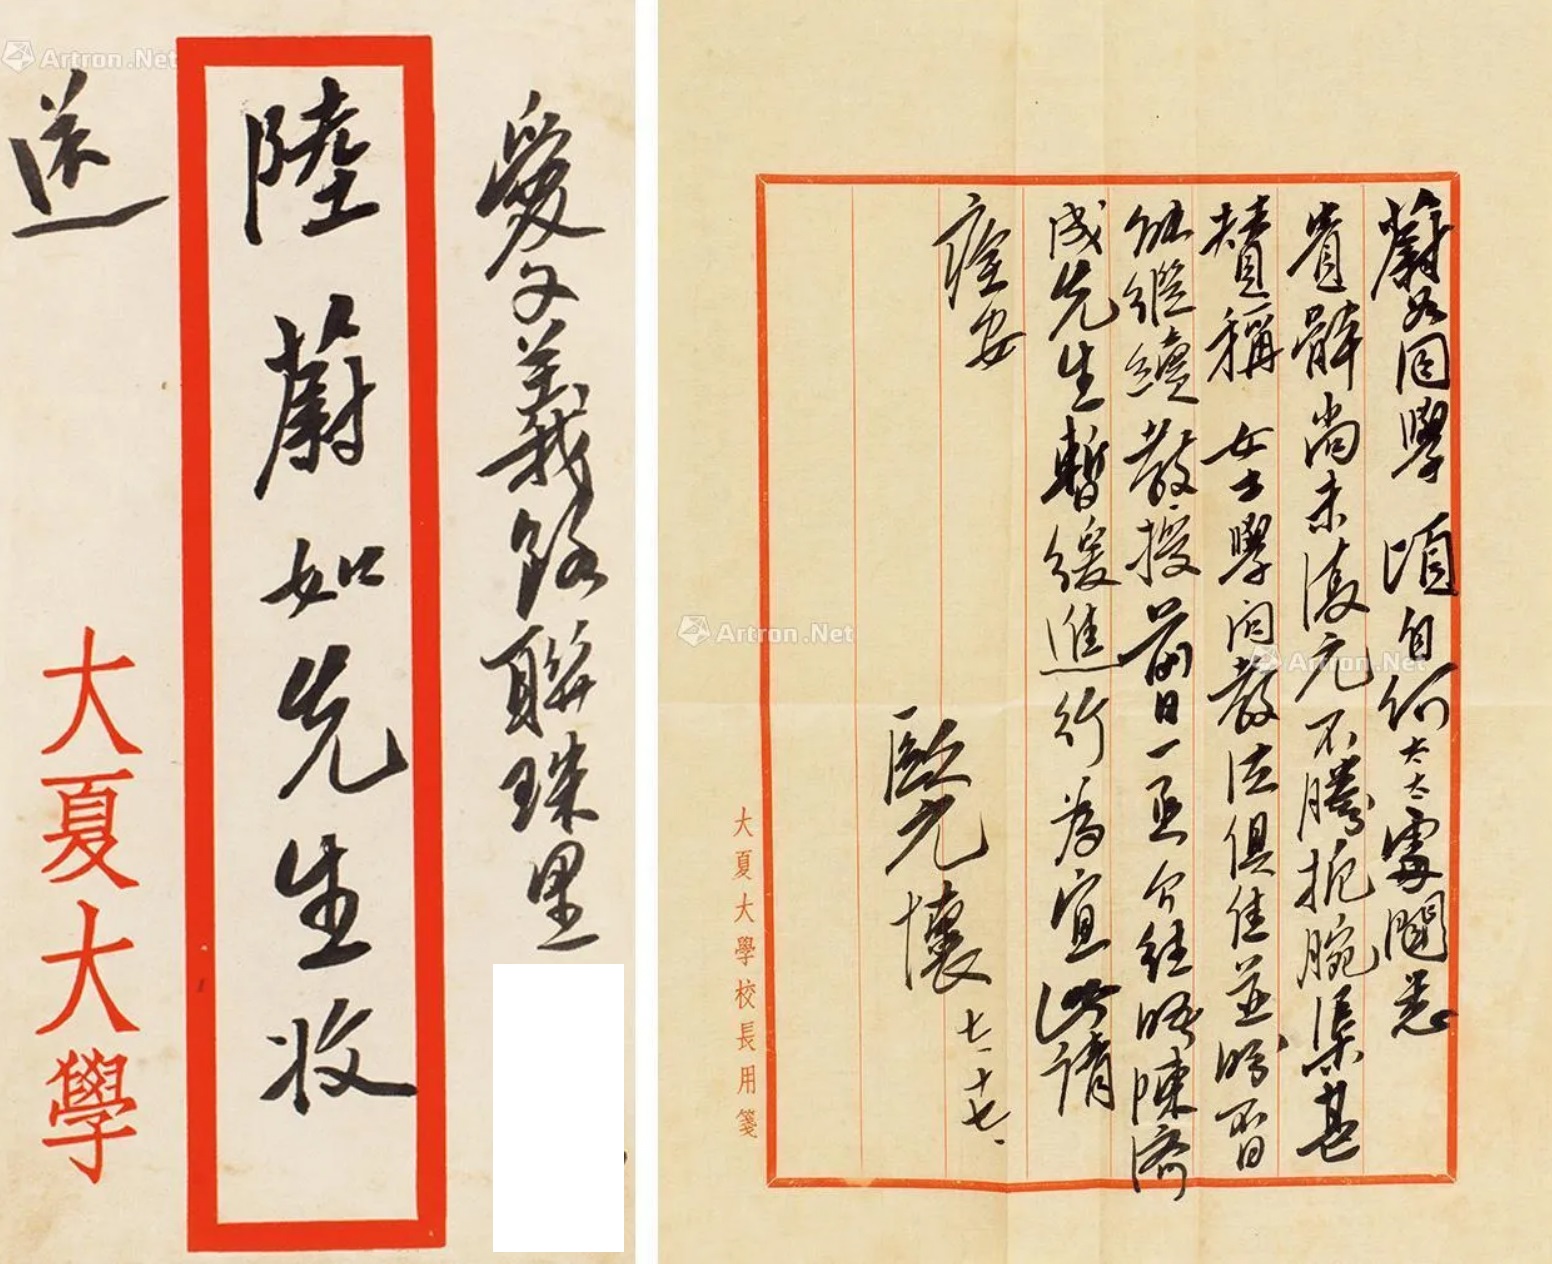 愛文義路聯珠里
陸蔚如先生收
送
大夏大學
蔚如同學 頃自何太太處聞悉
貴體尚未復元不勝扼腕渠甚
贊稱 女士學問教法俱佳並盼不日
能繼續教授前日一函介紹晤陳濟
成先生暫緩進行為宜此請
痊安
歐元懷
七、十七、
大夏大學校長用箋
Artron.Net
Artron.Net
Artron.Net